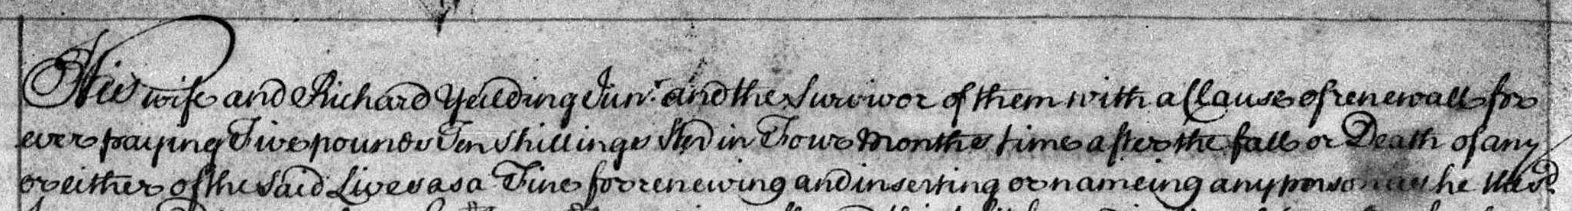 His wife and Richard Yeilding Jun.r and the Survivor of them with a Clause of renewall for
ever paying Five pounds Ten Shillings Ster in Four Months time after the fall or Death of any
or either of the Said Lives as a Fine for renewing and inserting or nameing any person as he the sd.